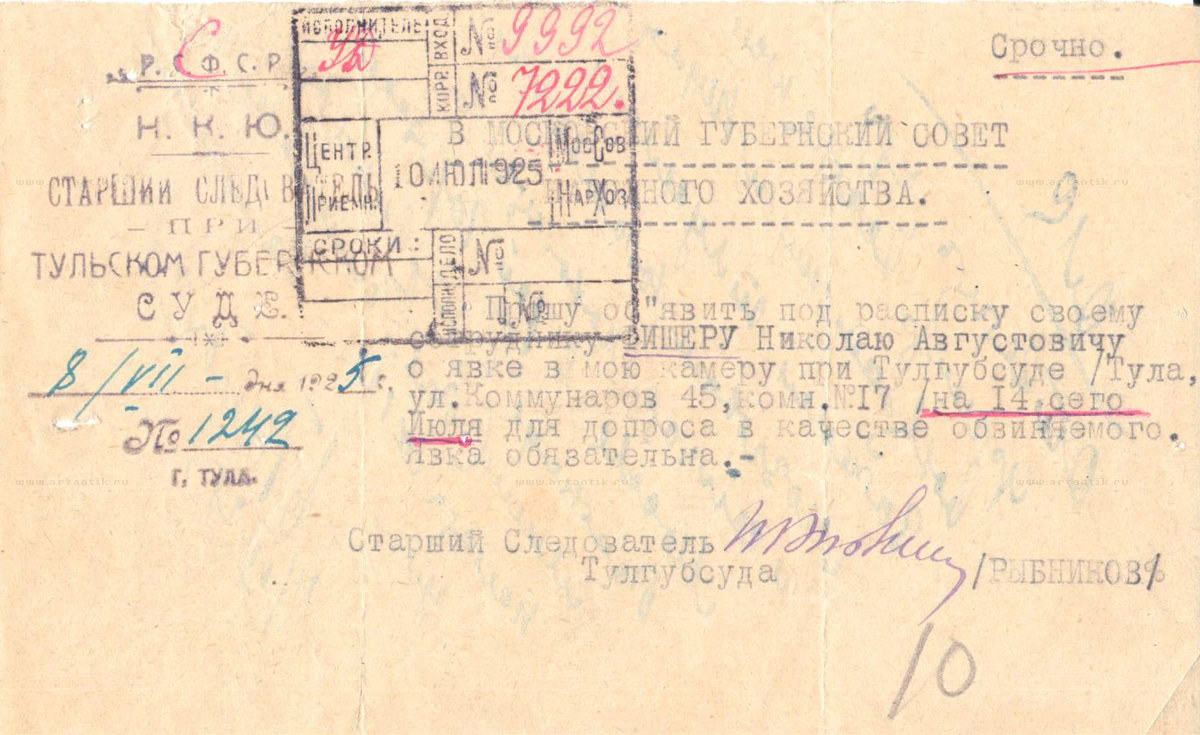 Срочно.
Р. С. Ф. С. Р.
Н. К. Ю.
СТАРШИЙ СЛЕДОВАТЕЛЬ
— ПРИ —
ТУЛЬСКОМ ГУБЕРНСКОМ
СУДЕ.
8/VII – дня 1925 г.
№ 1242
Г. ТУЛА.
ИСПОЛНИТЕЛЬ
ВХОД № 9992
КОРР. № 7222.
ЦЕНТР. ПРИЕМН.
10 ИЮЛ 1925
МосСов НарХоз
СРОКИ:
ИСПОЛН ДЕЛО
№
№
В МОСКОВСКИЙ ГУБЕРНСКИЙ СОВЕТ
НАРОДНОГО ХОЗЯЙСТВА.
Прошу об"явить под расписку своему
сотруднику ФИШЕРУ Николаю Августовичу
о явке в мою камеру при Тулгубсуде /Тула,
ул.Коммунаров 45,комн.№17 /на 14 сего
Июля для допроса в качестве обвиняемого.
Явка обязательна.-
Старший Следователь
Тулгубсуда
/РЫБНИКОВ/
10
www.artantik.ru